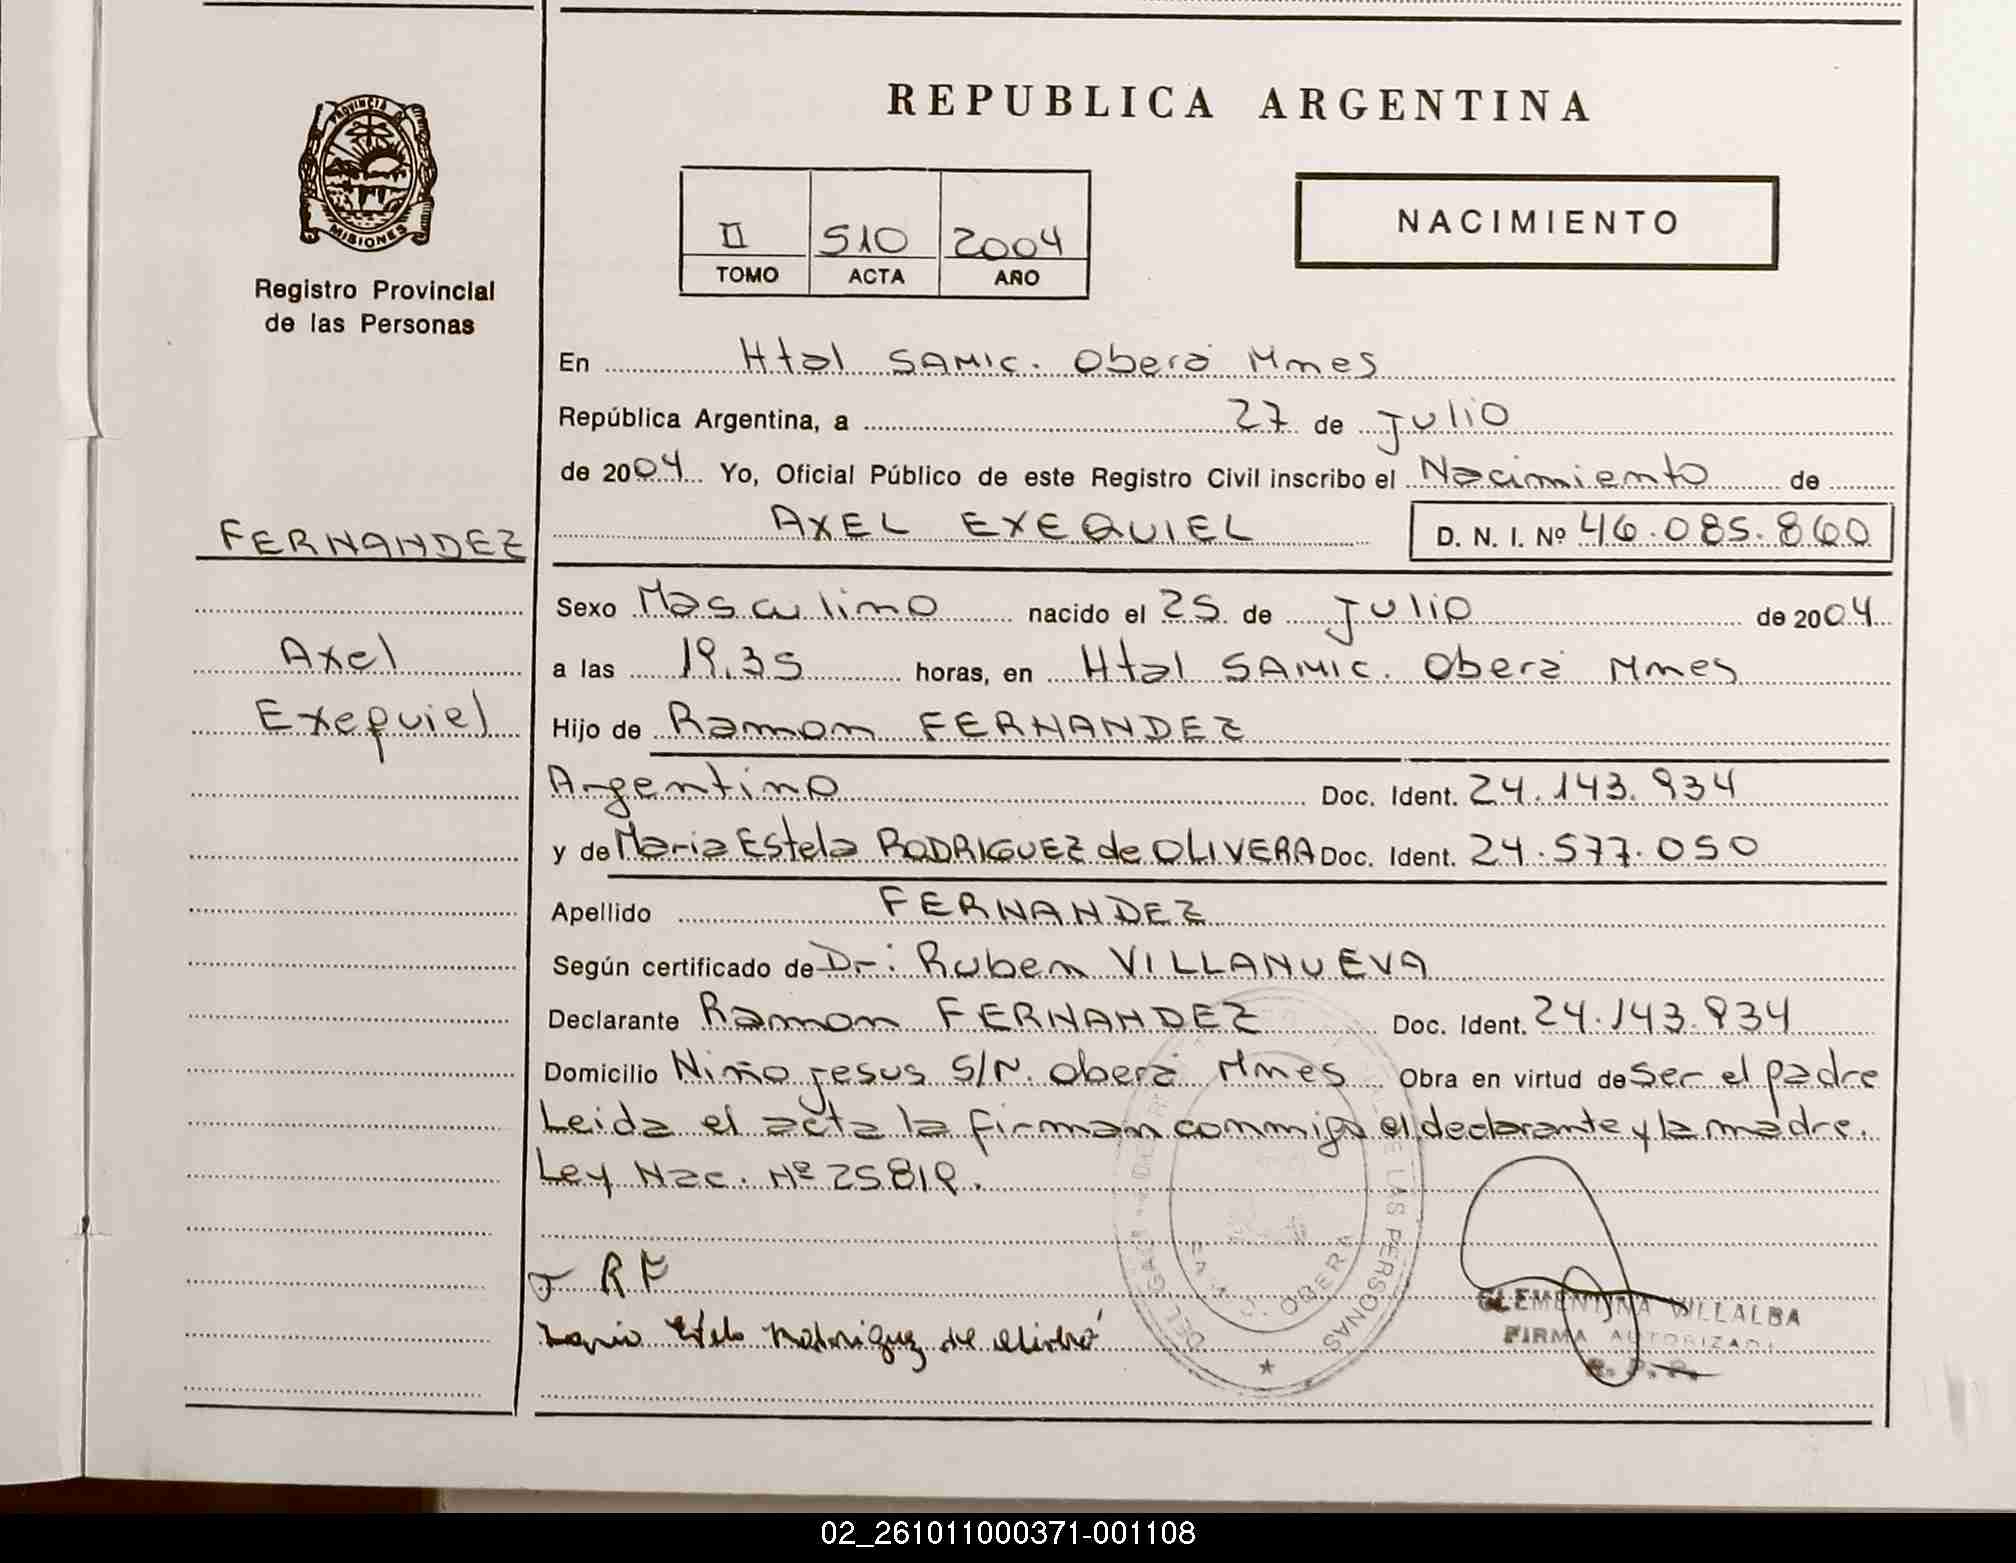 REPUBLICA ARGENTINA
PROVINCIA DE
MISIONES
Registro Provincial
de las Personas
II 510 2004
TOMO ACTA AÑO
NACIMIENTO
En Htal SAMIC. Oberá Mnes
República Argentina, a 27 de Julio
de 2004 Yo, Oficial Público de este Registro Civil inscribo el Nacimiento de
AXEL EXEQUIEL D. N. I. Nº 46.085.860
FERNANDEZ
Axel
Exequiel
Sexo Masculino nacido el 25 de Julio de 2004
a las 19.35 horas, en Htal SAMIC. Oberá Mnes
Hijo de Ramon FERNANDEZ
Argentino Doc. Ident. 24.143.934
y de Maria Estela RODRIGUEZ de OLIVERA Doc. Ident. 24.577.050
Apellido FERNANDEZ
Según certificado de Dr: Ruben VILLANUEVA
Declarante Ramon FERNANDEZ Doc. Ident. 24.143.934
Domicilio Niño Jesus S/N. Oberá Mnes Obra en virtud de Ser el padre
Leida el acta la firman conmigo el declarante y la madre.
Ley Nac. Nº 25819.
R.F
Maria Estela Rodriguez de Olivera
LAS PERSONAS
OBERA
CLEMENTINA VILLALBA
FIRMA AUTORIZADA
02_261011000371-001108